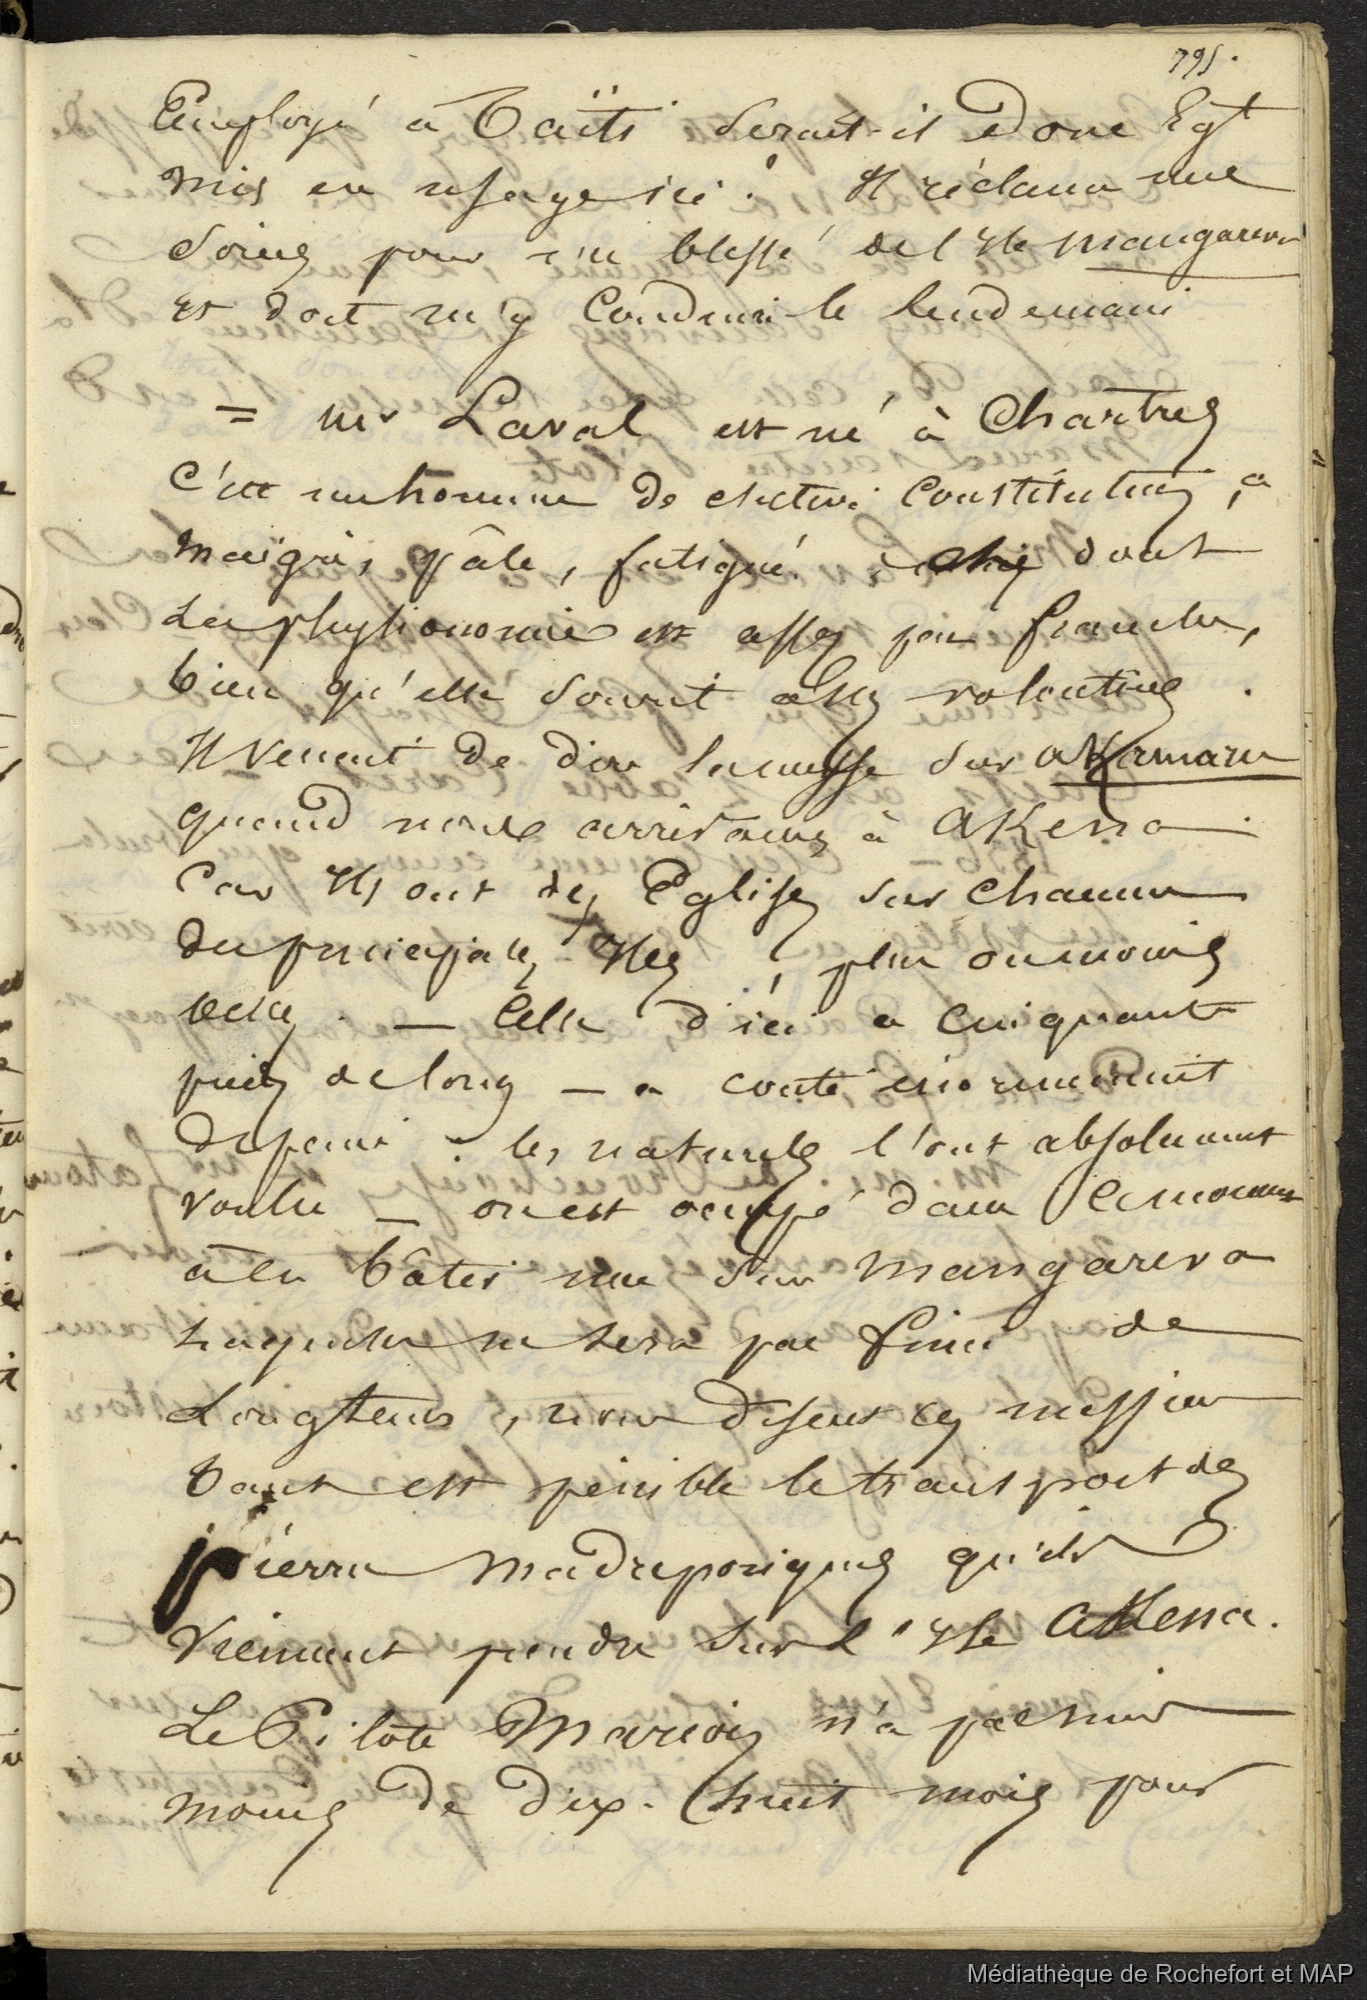 795.
Employé à Taïti serait-il donc Egt
mis en usage ici. Il réclama mes
soins pour un blessé de l'Ile mangareva
et doit m'y conduire le lendemain
= mr Laval est né à Chartres
c'est un homme de chetive constitution,
maigre, pâle, fatigué. dont
La physionomie est assez peu franche,
bien qu'elle sourit assez volontiers.
Il venait de dire la messe sur aKamaru
quand nous arrivames à AKena
Car Ils ont des Eglises sur chacune
des principales Iles, plus ou moins
belles. — Celle d'ici a cinquante
pieds de long — a couté enormement
de peine. les naturels l'ont absolument
voulu — on est occupé dans ce moment
à en bâtir une sur Mangareva
laquelle ne sera pas finie de
Longtems, nous disent ces messieurs
tant est pénible le transport des
pierres madreporiques qu'ils
viennent prendre sur l'Ile AKena.
Le Pilote Marion n'a pas mis
moins de dix-huit mois pour
Médiathèque de Rochefort et MAP